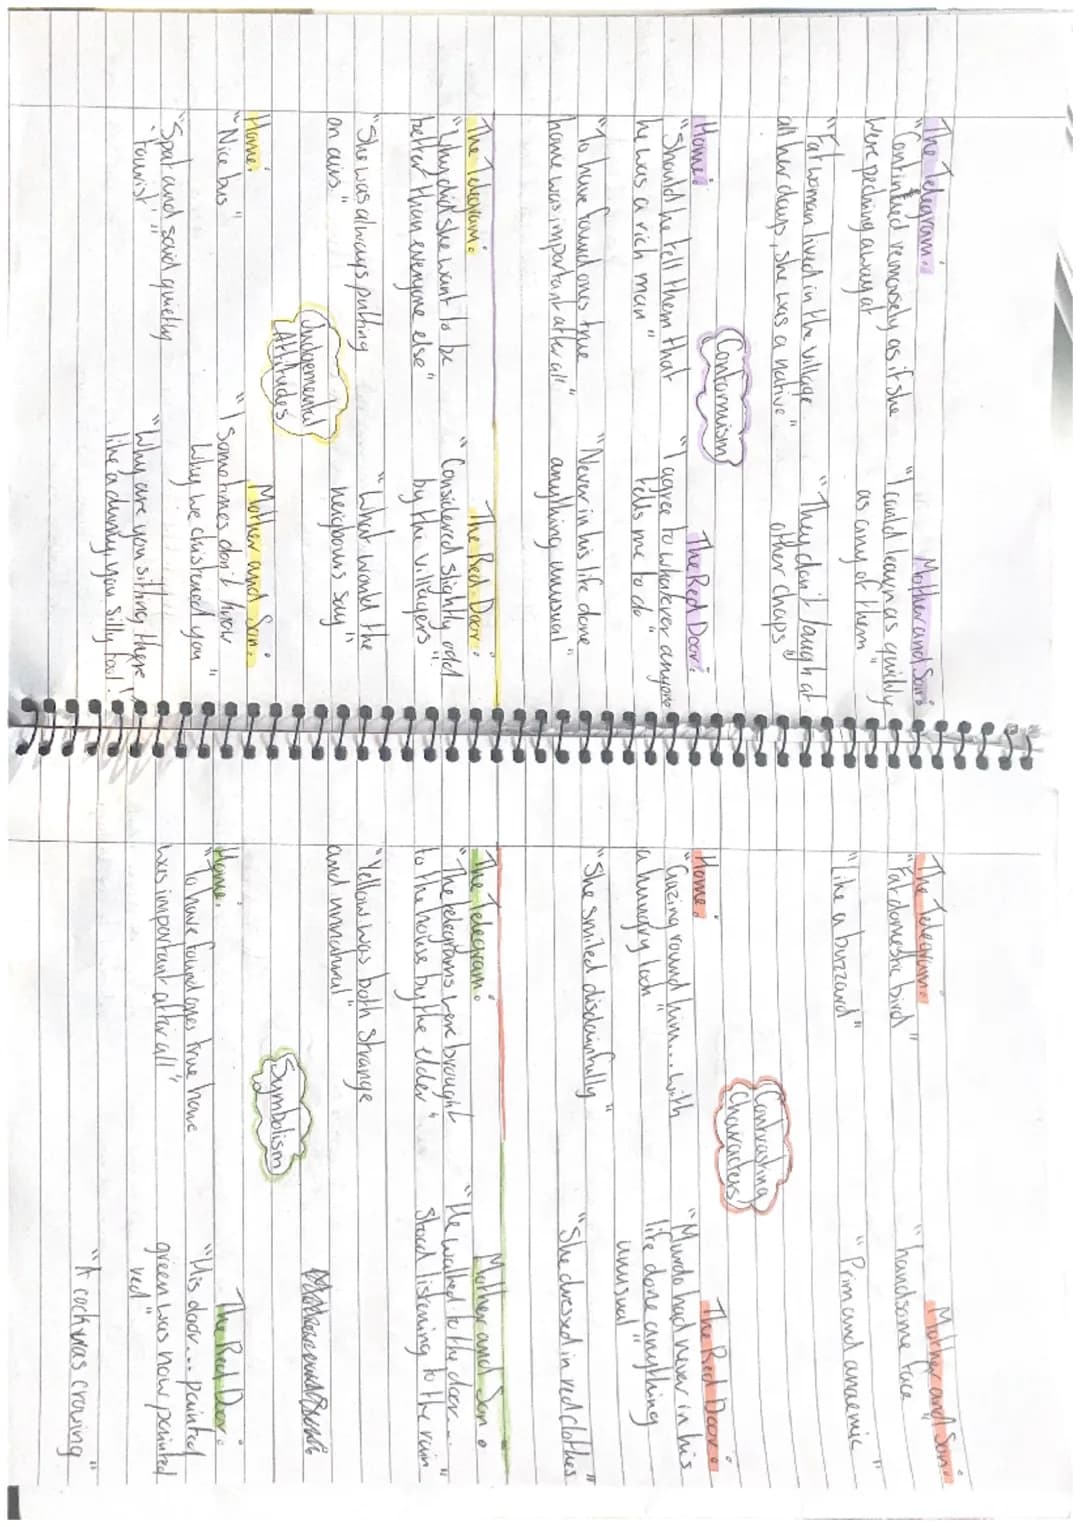 The Telegram:
"Continued remorsely as if she
were pecking away at
"Fat woman lived in the village
all her days, she was a native"
Mother and Son:
"I could learn as quickly
as any of them"
"They don't laugh at
other chaps"
Conformism
Home:
"Should he tell them that
he was a rich man"
"To have found ones true
home was important after all"
The Red Door:
"I agree to whatever anyone
tells me to do"
"Never in his life done
anything unusual"
The Telegram:
"Why did she want to be
better than everyone else"
"She was always putting
on airs"
The Red Door:
"Considered slightly odd
by the villagers"
"What would the
neigbours say"
Judgemental
Attitudes
Home:
"Nice bus"
"Spat and said quietly
'Tourist'"
Mother and Son:
"I sometimes don't know
why we christened you"
"Why are you sitting there
like a dummy you silly fool!
The Telegram:
"Fat domestic bird"
"Like a buzzard"
Mother and Son:
"handsome face"
"Prim and anaemic"
Contrasting
Characters
Home:
"Gazing round him... with
a hungry look"
"She smiled disdainfully"
The Red Door:
"Murdo had never in his
life done anything
unusual"
"She dressed in red clothes"
The Telegram:
"The telegrams were brought
to the house by the elder"
"Yellow was both strange
and unnatural"
Mother and Son:
"He walked to the door...
stood listening to the rain"
Symbolism
Home:
"To have found ones true home
was important after all"
The Red Door:
"His door... painted
green was now painted
red"
"A cock was crowing"